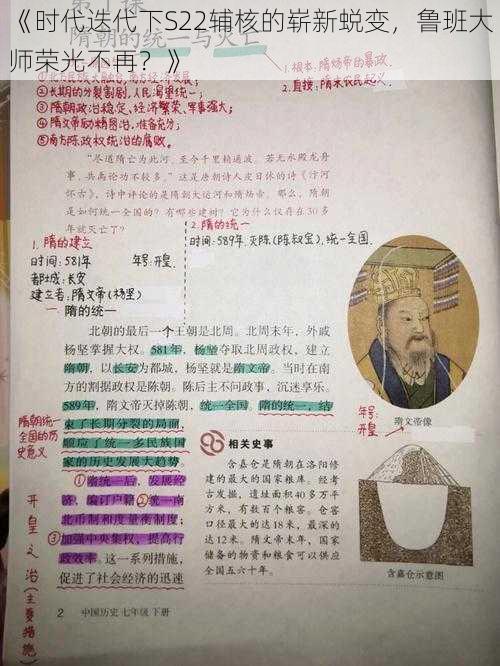 《时代迭代下S22辅核的崭新蜕变，鲁班大师荣光不再？》
隋朝的统一与灭亡
1.根本:隋炀帝的暴政.
2.直接:隋末农民起义.
②长期的分裂割剧,人民渴望统一;
③隋朝政治稳定、经济繁荣、军事强大;
④隋文帝励精图治,准备充分;
⑤南方陈政权统治的腐败。
“尽道隋亡为此河，至今千里赖通波。若无水殿龙舟
事，共禹论功不较多。”这是唐朝诗人皮日休的诗《汴河
怀古》，诗中评论的是隋朝大运河和隋炀帝。那么，隋朝
是如何统一全国的？有哪些建树？它为什么仅存在30多
年就灭亡了？
1.隋的建立
时间:581年 年号:开皇
都城:长安
建立者:隋文帝(杨坚)
2.隋的统一
时间:589年,灭陈(陈叔宝),统一全国.
一 隋的统一
北朝的最后一个王朝是北周。北周末年，外戚
杨坚掌握大权。581年，杨坚夺取北周政权，建立
隋朝，以长安为都城，杨坚就是隋文帝。当时在南
方的割据政权是陈朝。陈后主不问政事，沉迷享乐。
589年，隋文帝灭掉陈朝，统一全国。隋的统一，结
束了长期分裂的局面，
顺应了统一多民族国
家的历史发展大趋势。
①隋统一后，发展经
济，编订户籍，②统一南
北币制和度量衡制度，
③加强中央集权，提高行
政效率。这一系列措施，
促进了社会经济的迅速
隋朝统一
全国的历
史意义
开皇之治(主要措施)
年号:
开皇
隋文帝像
相关史事
含嘉仓是隋朝在洛阳修
建的最大的国家粮库。经考
古发掘，遗址面积40多万平
方米，有数百个粮仓。仓窖
口径最大的达18米，最深的
达12米。隋文帝末年，国家
储备的物资和粮食可以供应
全国五六十年。
含嘉仓示意图
2 中国历史 七年级 下册